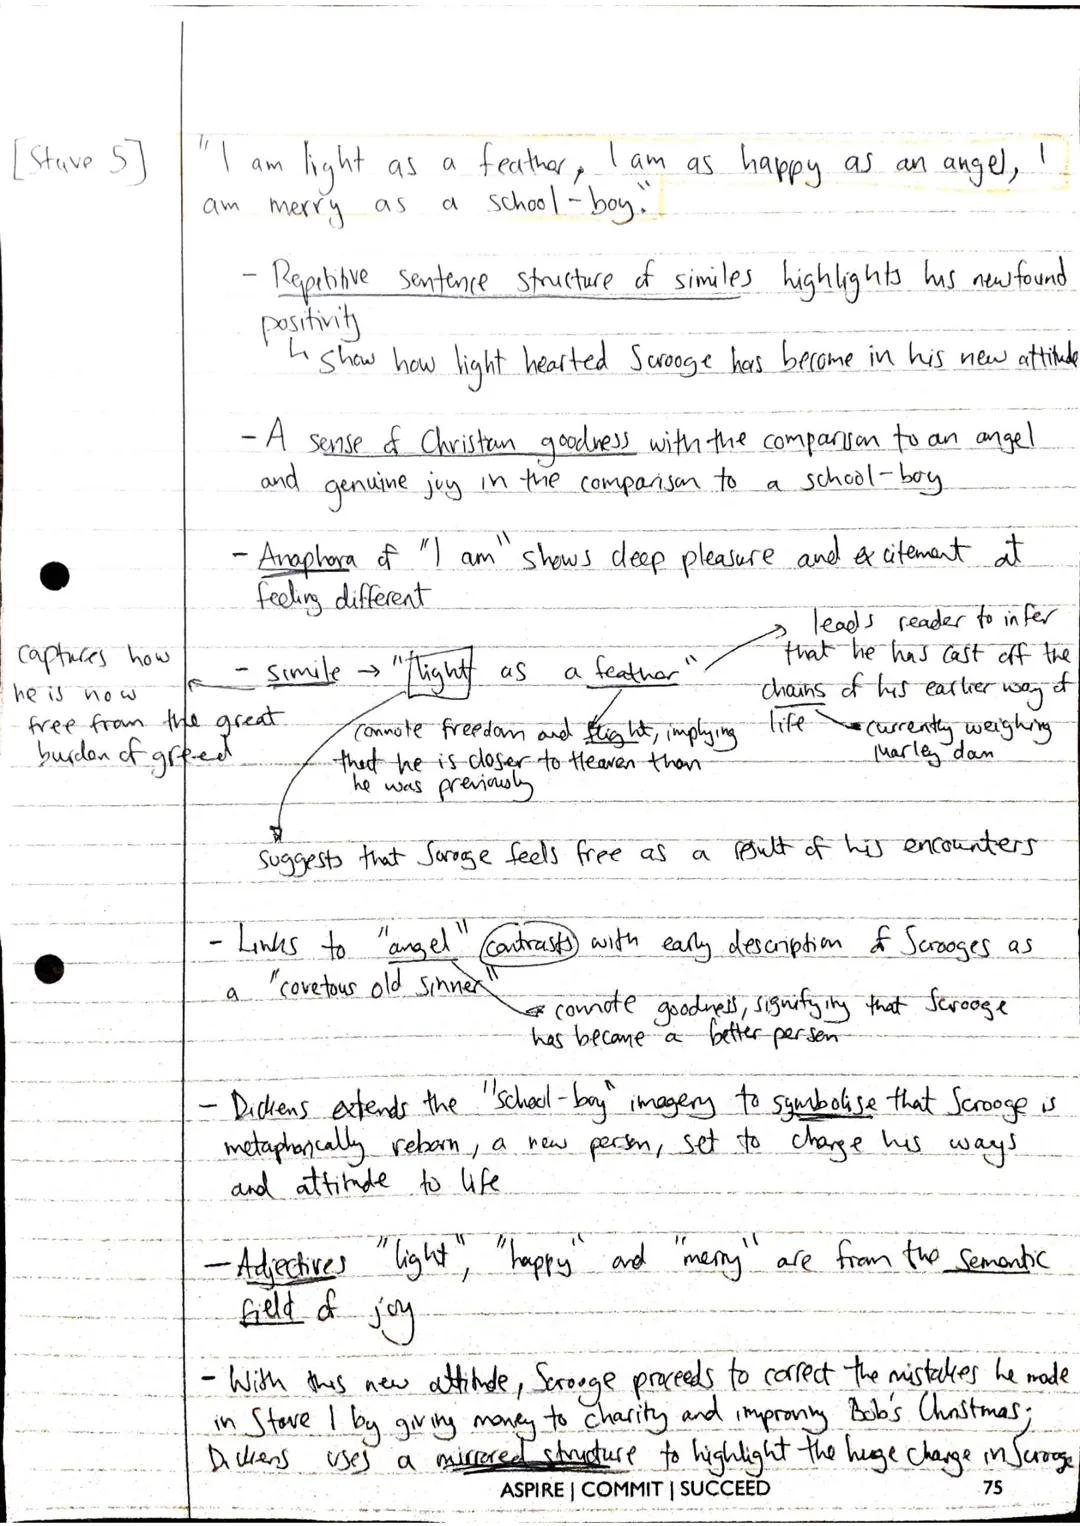 [Stave 5]
"I am light as a feather, I am as happy as an angel, I
am merry as a school-boy."
- Repetitive sentence structure of similes highlights his newfound
positivity
↳ show how light hearted Scrooge has become in his new attitude
- A sense of Christian goodness with the comparison to an angel
and genuine joy in the comparison to a school-boy
- Anaphora of "I am" shows deep pleasure and excitement at
feeling different
- simile → "light as a feather"
leads reader to infer
that he has cast off the
chains of his earlier way of
life
currently weighing
Marley down
captures how
he is now
free from the great
burden of greed
connote freedom and flight, implying
that he is closer to Heaven than
he was previously
suggests that Scrooge feels free as a result of his encounters
- Links to "angel" contrasts with early description of Scrooges as
a "covetous old sinner"
connote goodness, signifying that Scrooge
has become a better person
- Dickens extends the "school-boy" imagery to symbolise that Scrooge is
metaphorically reborn, a new person, set to change his ways
and attitude to life
- Adjectives "light", "happy" and "merry" are from the semantic
field of joy
- With this new attitude, Scrooge proceeds to correct the mistakes he made
in Stave 1 by giving money to charity and improving Bob's Christmas;
Dickens uses a mirrored structure to highlight the huge change in Scrooge
ASPIRE | COMMIT | SUCCEED
75